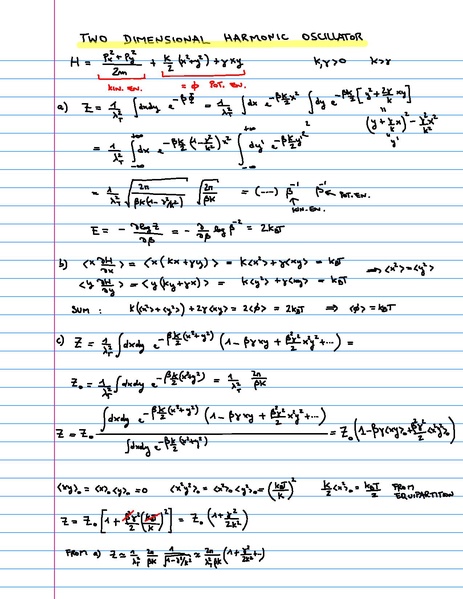 TWO DIMENSIONAL HARMONIC OSCILLATOR
H = (Px² + Py²)/2m + K/2 (x²+y²) + γxy    K,γ>0    K>γ
KIN. EN.    = ϕ POT. EN.
a) Z = 1/λ_T² ∫dxdy e^(-βΦ) = 1/λ_T² ∫dx e^(-βK/2 x²) ∫dy e^(-βK/2 [y² + 2γ/K xy])
" (y + γ/K x)² - γ²/K² x²
" y'
= 1/λ_T² ∫_{-∞}^{+∞} dx e^(-βK/2 (1-γ²/K²) x²) ∫_{-∞}^{+∞} dy' e^(-βK/2 y'²)
= 1/λ_T² √(2π/(βK(1-γ²/K²))) √(2π/βK) = (----) β⁻¹ β⁻¹ ← POT. EN.
↑ KIN. EN.
E = - ∂logZ/∂β = - ∂/∂β log β⁻² = 2K_BT
b) <x ∂H/∂x> = <x (Kx+γy)> = K<x²> + γ<xy> = K_BT    ⇒ <x²> = <y²>
<y ∂H/∂y> = <y (Ky+γx)> = K<y²> + γ<xy> = K_BT
SUM : K(<x²>+<y²>) + 2γ<xy> = 2<ϕ> = 2K_BT ⇒ <ϕ> = K_BT
c) Z = 1/λ_T² ∫dxdy e^(-βK/2 (x²+y²)) (1 - βγxy + β²γ²/2 x²y² + ...) =
Z₀ = 1/λ_T² ∫dxdy e^(-βK/2 (x²+y²)) = 1/λ_T² 2π/βK
Z = Z₀ ∫dxdy e^(-βK/2 (x²+y²)) (1 - βγxy + β²γ²/2 x²y² + ...) / ∫dxdy e^(-βK/2 (x²+y²)) = Z₀ (1 - βγ<xy>₀ + β²γ²/2 <x²y²>₀)
<xy>₀ = <x>₀ <y>₀ = 0    <x²y²>₀ = <x²>₀ <y²>₀ = (K_BT/K)²    K/2 <x²>₀ = K_BT/2 FROM EQUIPARTITION
Z = Z₀ [1 + β²γ²/2 (K_BT/K)²] = Z₀ (1 + γ²/2K²)
FROM a) Z ≃ 1/λ_T² 2π/βK 1/√(1-γ²/K²) ≈ 2π/λ_T²βK (1 + γ²/2K² + ...)